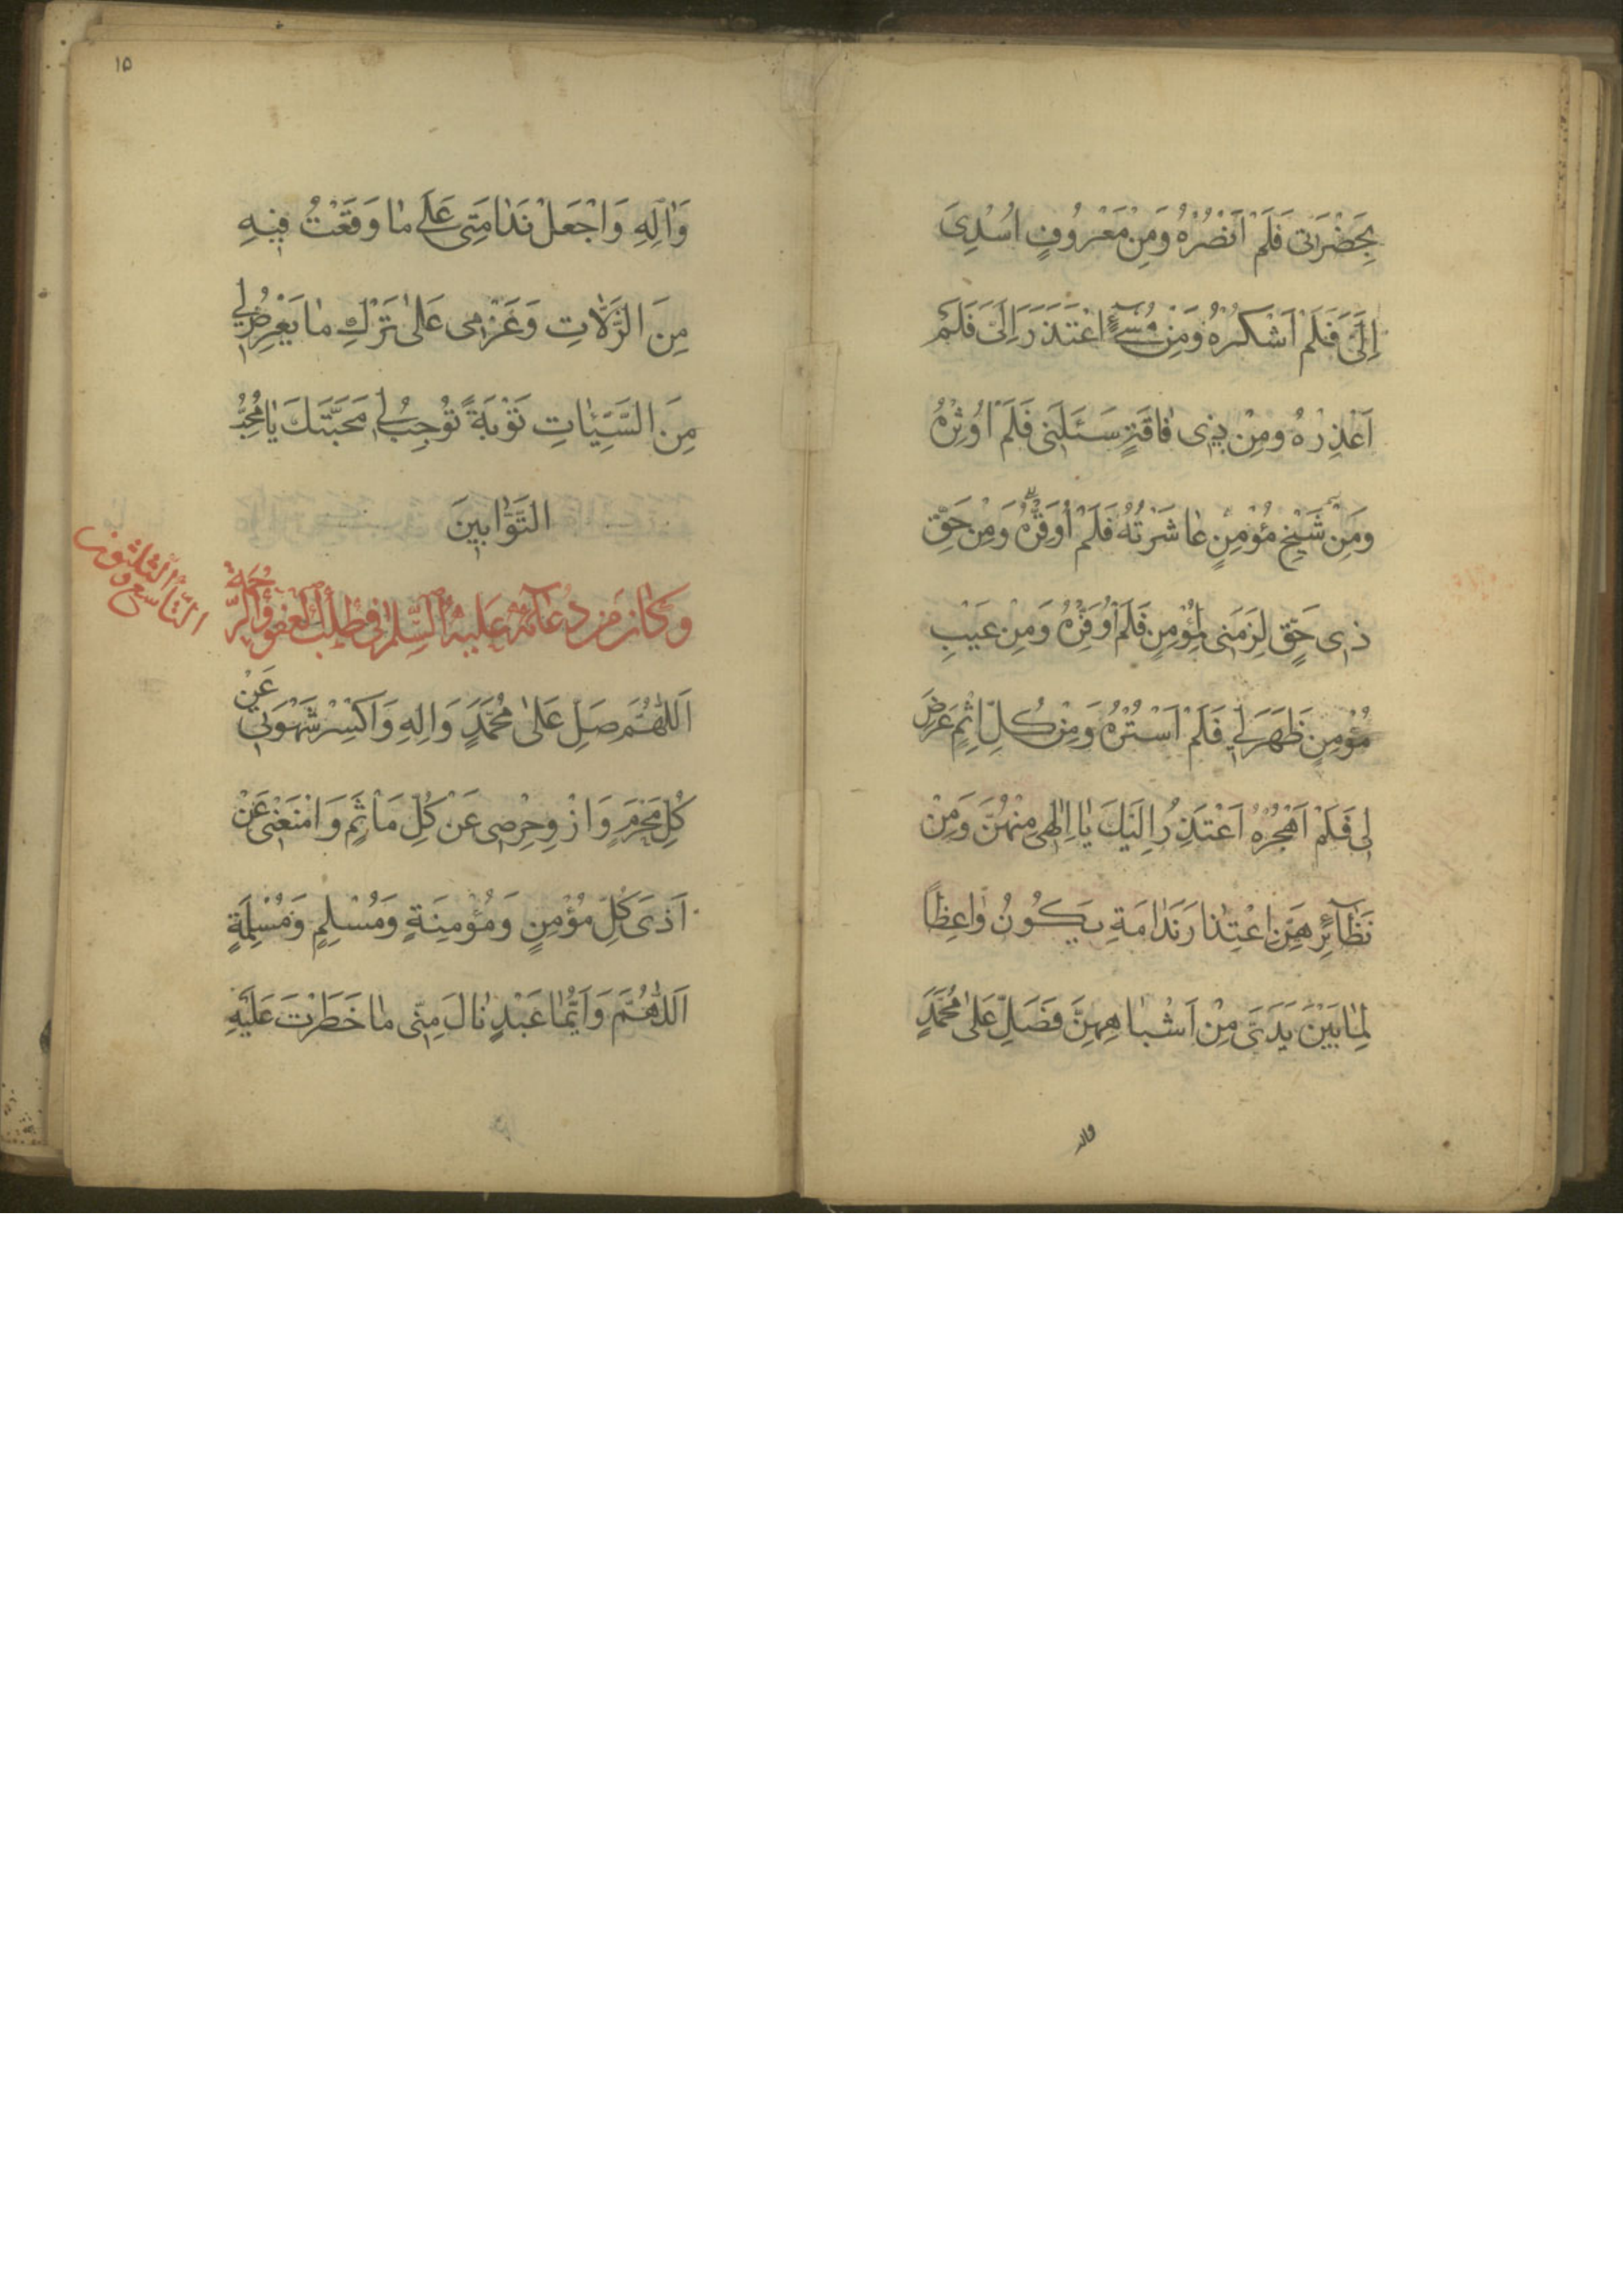 بِحَضْرَتی فَلَمْ اَنْصُرْهُ وَمِنْ مَعْرُوفٍ اُسْدِیَ
اِلَیَّ فَلَمْ اَشْکُرْهُ وَمِنْ مُسیٓءٍ اعْتَذَرَ اِلَیَّ فَلَمْ
اَعْذِرْهُ ومِنْ ذی فٰاقَةٍ سَئَلَنی فَلَمْ اُوثِرْهُ
ومَنِْ شَیْخٍ مُؤْمِنٍ عٰاشَرْتُهُ فَلَمْ اُوَقِّرْهُ وَمِنْ حَقِّ
ذی حَقٍّ لَزِمَنی لِمُؤْمِنٍ فَلَمْ اُوَفِّرْهُ وَمِنْ عَیْبِ
مُؤْمِنٍ ظَهَرَ لی فَلَمْ اَسْتُرْهُ وَمِنْ کُلِّ اِثْمٍ عَرَضَ
لی فَلَمْ اَهْجُرْهُ اَعْتَذِرُ اِلَیْکَ یٰا اِلٰهی مِنْهُنَّ وَمِنْ
نَظٰٓائِرِهِنَّ اِعْتِذٰارَ نَدٰامَةٍ یَکُونُ وٰاعِظاً
لِمٰا بَیْنَ یَدَیَّ مِنْ اَشْبٰاهِهِنَّ فَصَلِّ عَلٰی مُحَمَّدٍ
واله
۱۵
وَاٰلِهِ وَاجْعَلْ نَدٰامَتی عَلٰی مٰا وَقَعْتُ فیهِ
مِنَ الزَّلّٰاتِ وَعَزْمی عَلٰی تَرْکِ مٰا یَعْرِضُ لی
مِنَ السَّیِّئٰاتِ تَوْبَةً تُوجِبُ لی مَحَبَّتَکَ یٰا مُحِبَّ
التَّوّٰابینَ
وَکٰانَ مِنْ دُعٰآئِهِ عَلَیْهِ السَّلٰمُ فی طَلَبِ الْعَفْوِ وَالرَّحْمَةِ
التّٰاسِعُ وَالثَّلٰثُونَ
اَللّٰهُمَّ صَلِّ عَلٰی مُحَمَّدٍ وَاٰلِهِ وَاکْسِرْ شَهْوَتی عَنْ
کُلِّ مَحْرَمٍ وَازْوِ حِرْصی عَنْ کُلِّ مَاْثَمٍ وَامْنَعْنی عَنْ
اَذٰی کُلِّ مُؤْمِنٍ وَمُؤْمِنَةٍ وَمُسْلِمٍ وَمُسْلِمَةٍ
اَللّٰهُمَّ وَاَیُّمٰا عَبْدٍ نٰالَ مِنّی مٰا حَظَرْتَ عَلَیْهِ